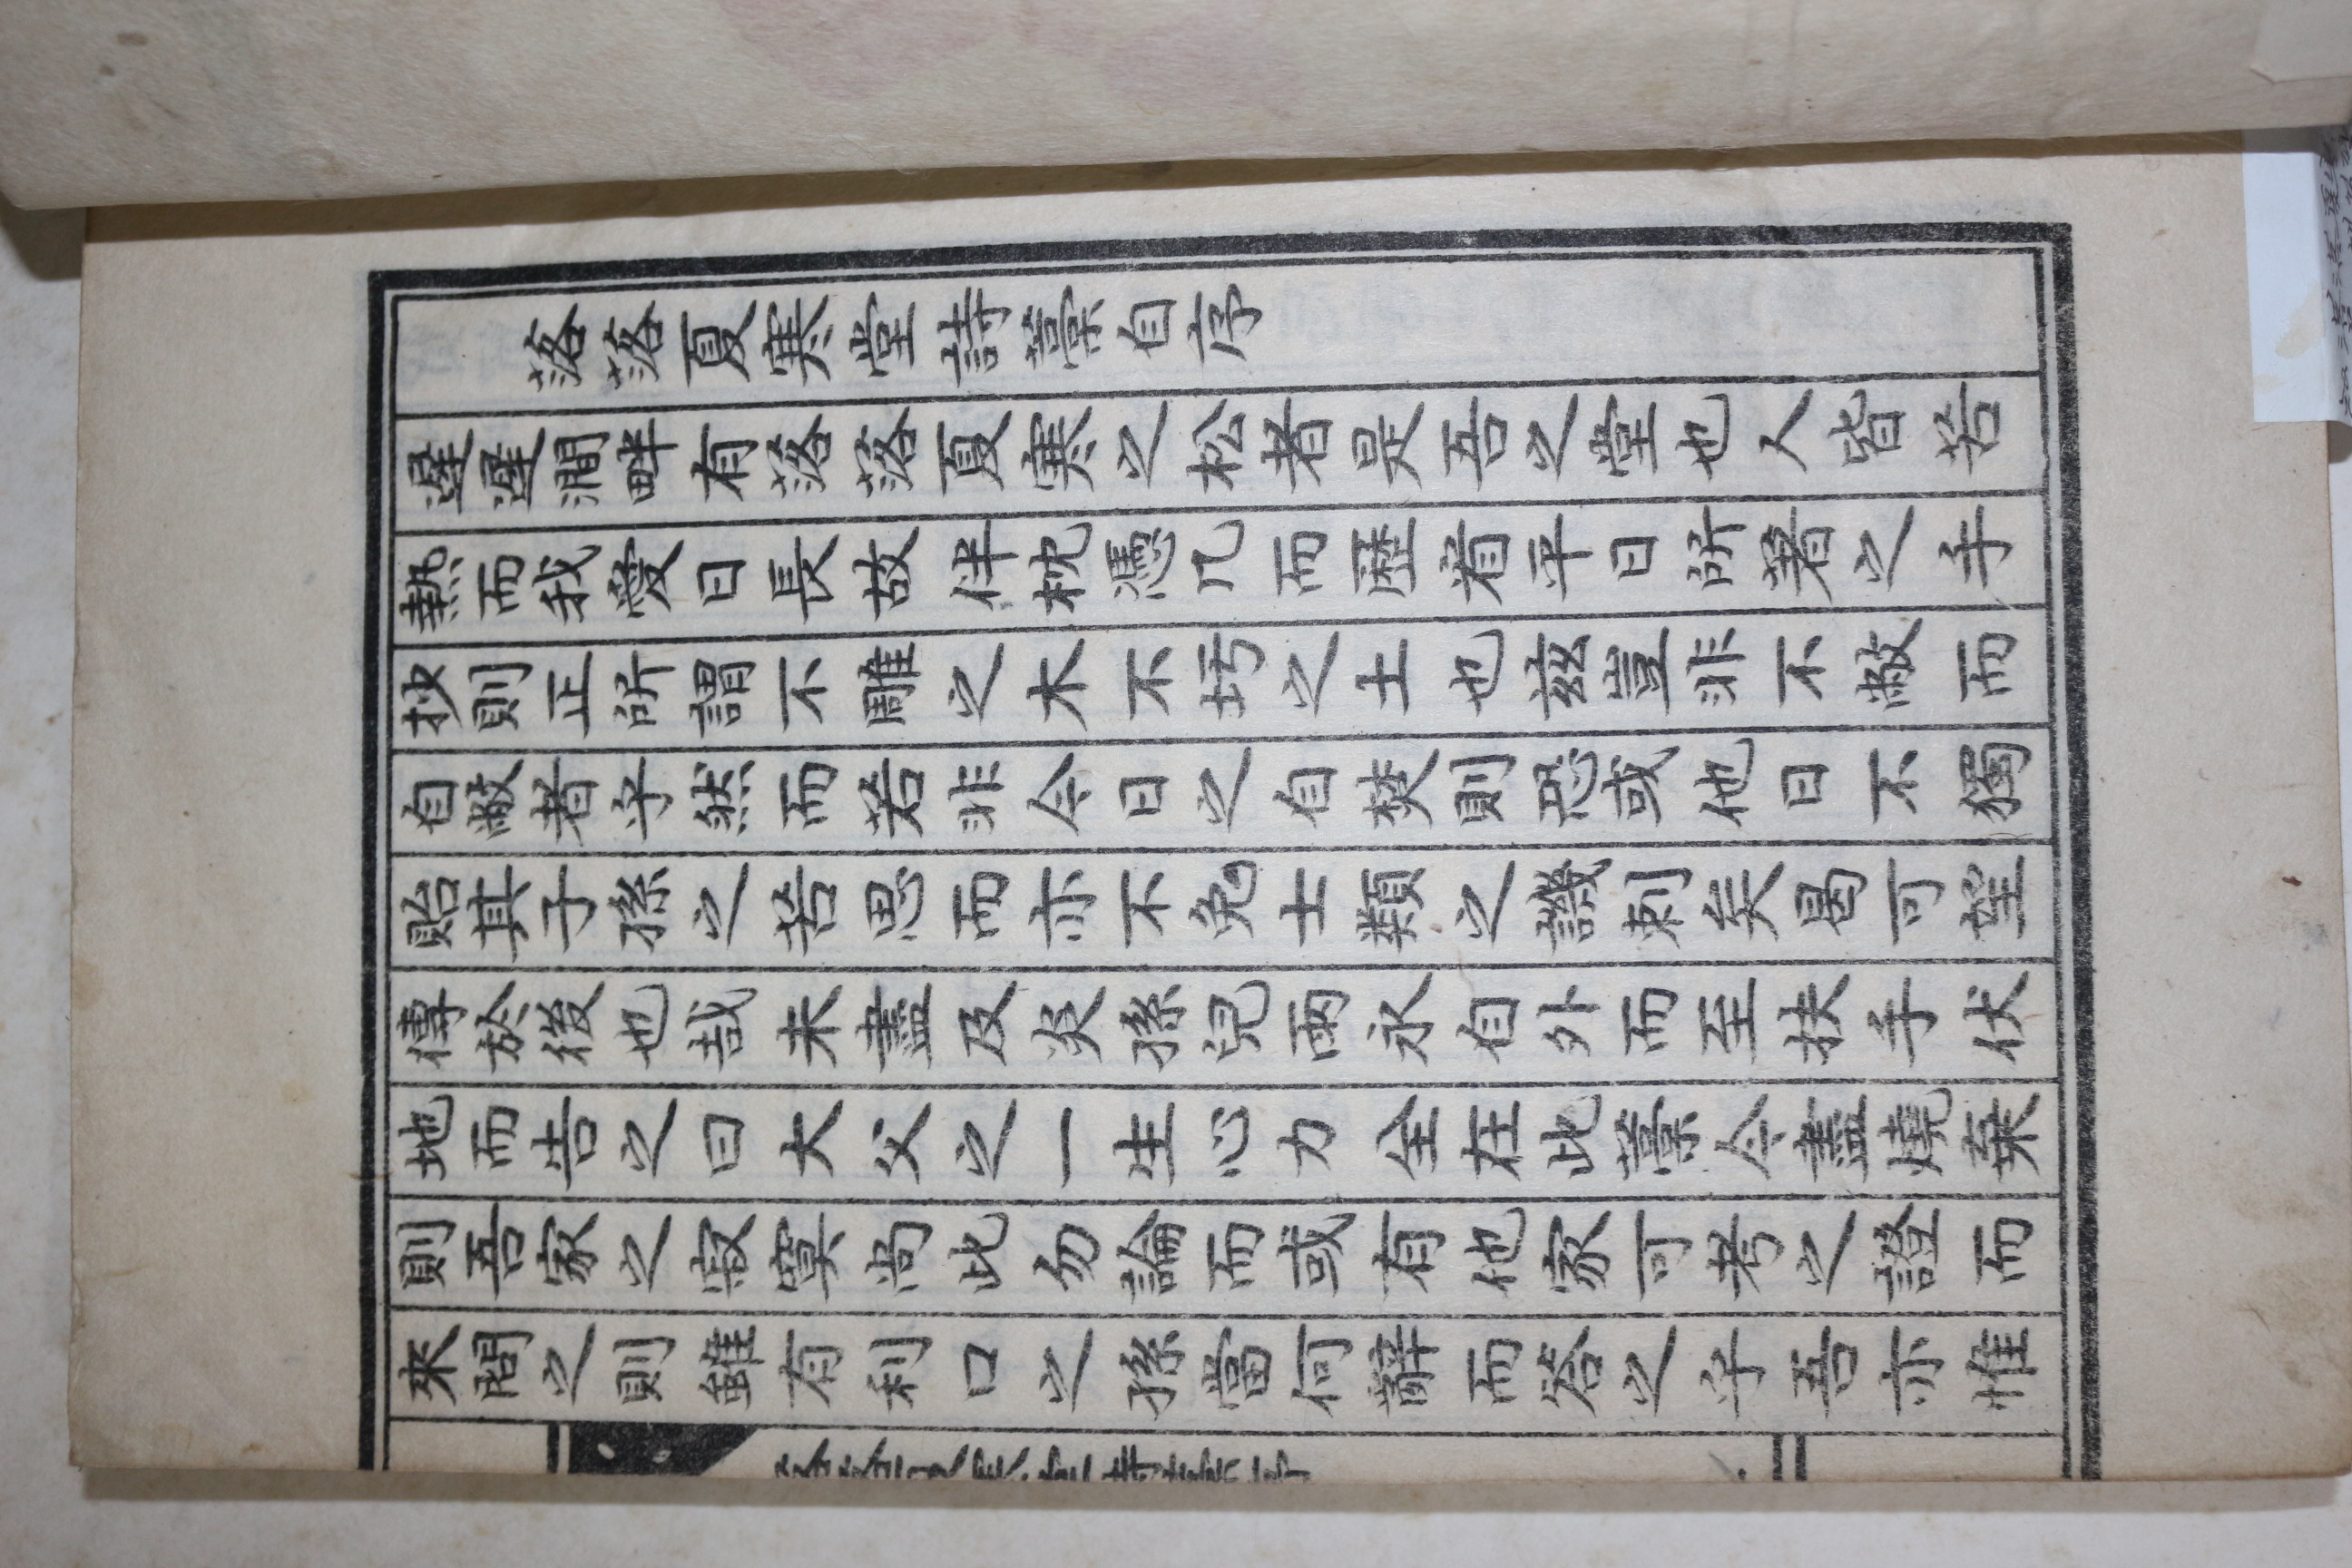 落落夏寒堂詩藁自序
遲遲澗畔有落落夏寒之松者是吾之堂也人皆苦
熱而我愛日長故伴枕憑几而歷看平日所著之手
抄則正所謂不雕之木不圬之土也玆豈非不敝而
自敝者乎然而若非今日之自焚則恐或他日不獨
貽其子孫之苦思而亦不免士類之譏刺矣曷可望
傳於後也哉未盡及炎孫兒兩永自外而至扶手伏
地而告之曰大父之一生心力全在此藁今盡燒棄
則吾家之寂寞尚此勿論而或有他家可考之證而
來問之則雖有利口之孫當何辭而答之乎吾亦惟